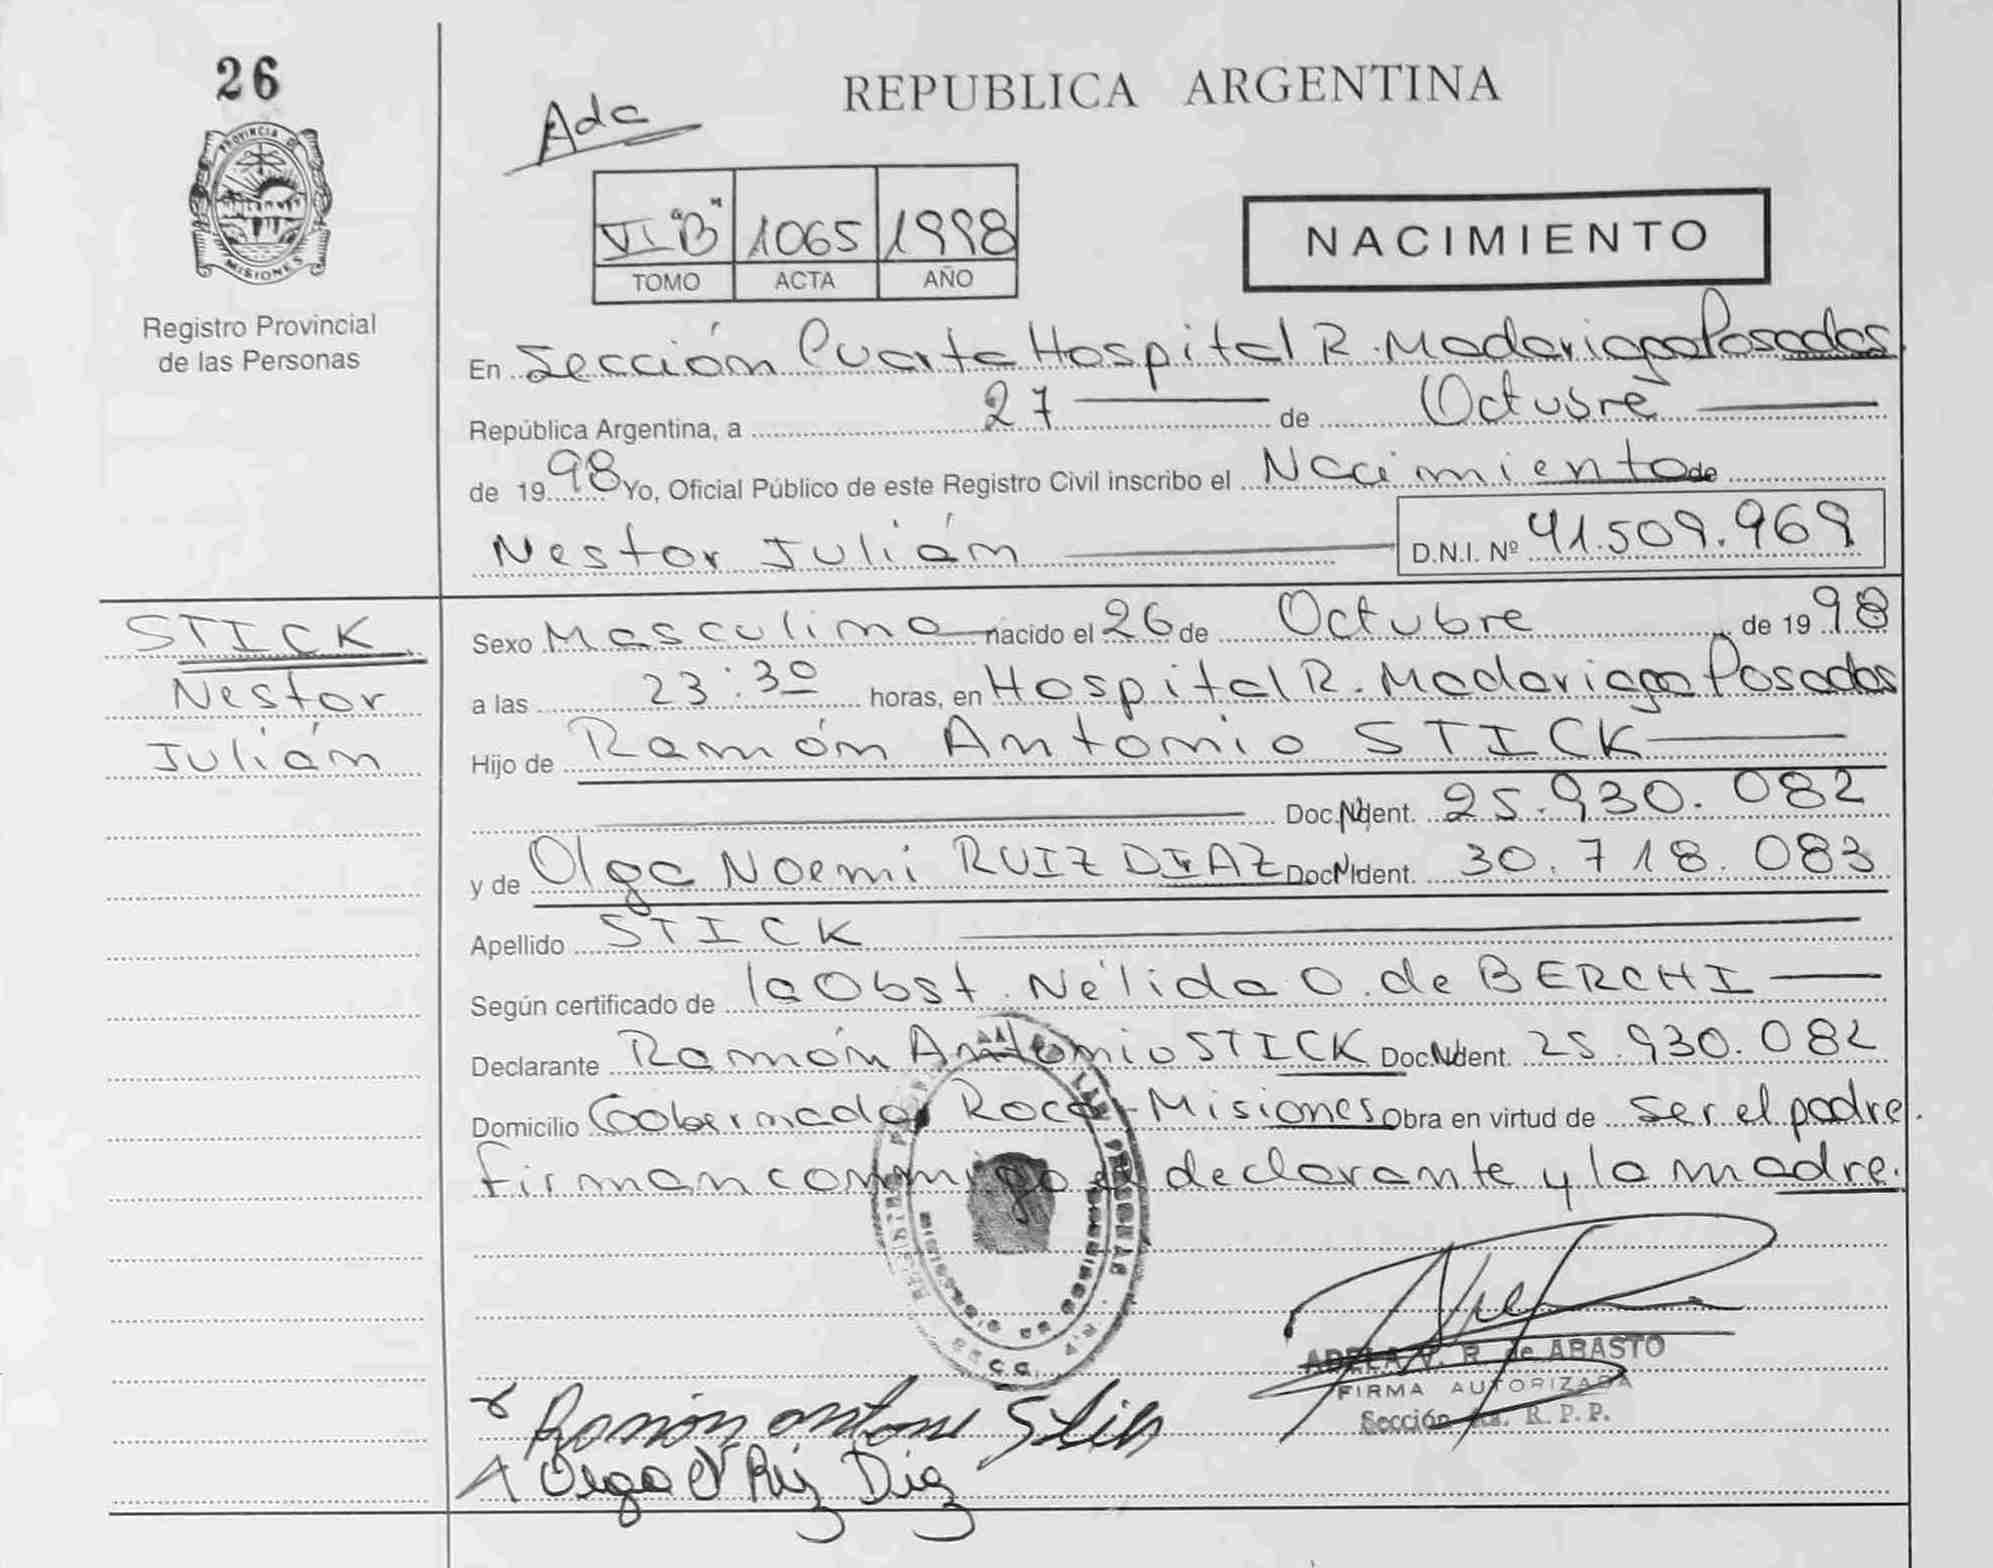 26
PROVINCIA DE
MISIONES
Registro Provincial
de las Personas
REPUBLICA ARGENTINA
VI "B" 1065 1998
TOMO ACTA AÑO
NACIMIENTO
En Sección Cuarta Hospital R. Madariaga Posadas
República Argentina, a 27 de Octubre
de 1998 Yo, Oficial Público de este Registro Civil inscribo el Nacimiento de
Nestor Julián D.N.I. Nº 41.509.969
STICK
Nestor
Julián
Sexo Masculino nacido el 26 de Octubre de 1998
a las 23:30 horas, en Hospital R. Madariaga Posadas
Hijo de Ramón Antonio STICK
Doc. Ident. 25.930.082
y de Olga Noemi RUIZ DIAZ Doc. Ident. 30.718.083
Apellido STICK
Según certificado de la Obst. Nélida O. de BERCHI
Declarante Ramón Antonio STICK Doc. Ident. 25.930.082
Domicilio Gobernador Roca - Misiones Obra en virtud de ser el padre.
firman conmigo el declarante y la madre.
ADELA V. R. de ARASTO
FIRMA AUTORIZADA
Sección R. P. P.
Ramón Antonio Stick
Olga N Ruiz Diaz